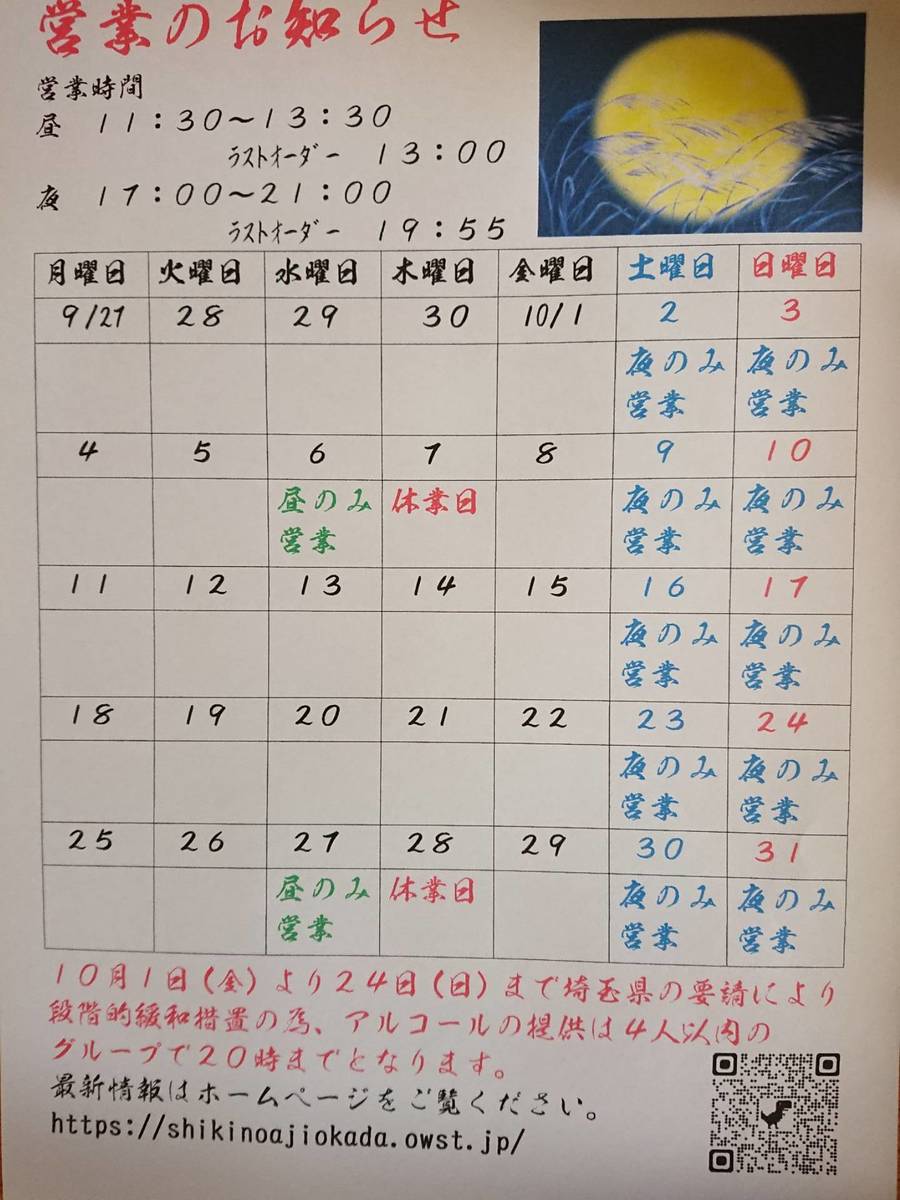 営業のお知らせ
営業時間
昼 11:30～13:30
ﾗｽﾄｵｰﾀﾞｰ 13:00
夜 17:00～21:00
ﾗｽﾄｵｰﾀﾞｰ 19:55
月曜日 火曜日 水曜日 木曜日 金曜日 土曜日 日曜日
9/27 28 29 30 10/1 2 3
夜のみ 夜のみ
営業 営業
4 5 6 7 8 9 10
昼のみ 休業日 夜のみ 夜のみ
営業 営業 営業
11 12 13 14 15 16 17
夜のみ 夜のみ
営業 営業
18 19 20 21 22 23 24
夜のみ 夜のみ
営業 営業
25 26 27 28 29 30 31
昼のみ 休業日 夜のみ 夜のみ
営業 営業 営業
10月1日（金）より24日（日）まで埼玉県の要請により
段階的緩和措置の為、アルコールの提供は4人以内の
グループで20時までとなります。
最新情報はホームページをご覧ください。
https://shikinoajiokada.owst.jp/